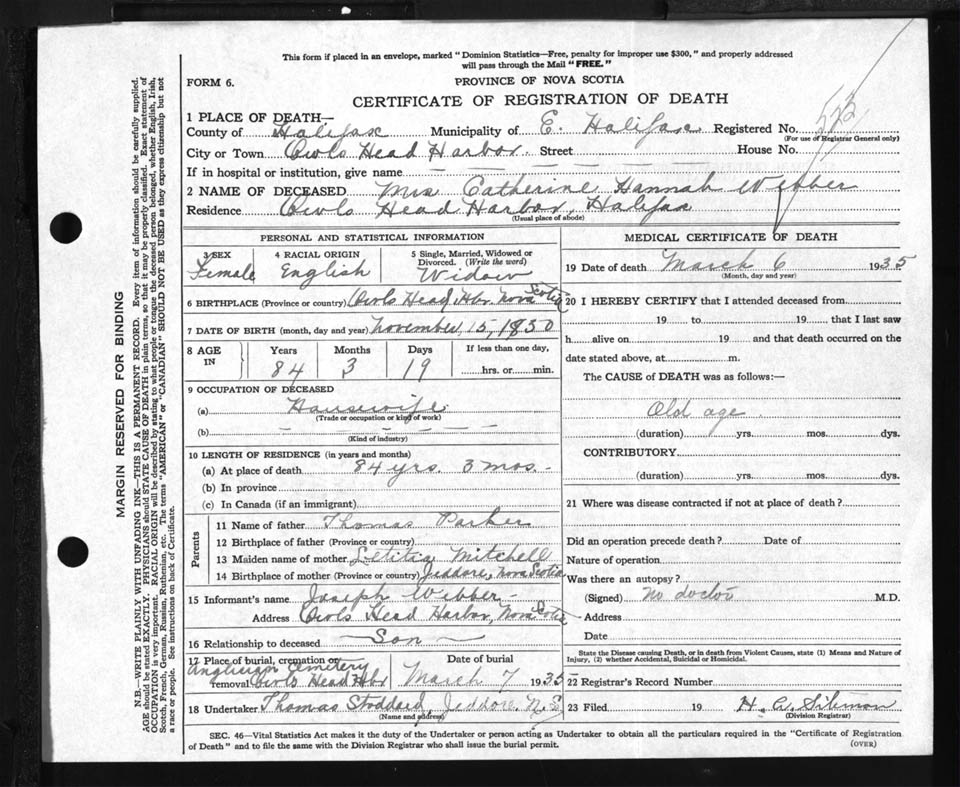 This form if placed in an envelope, marked "Dominion Statistics—Free, penalty for improper use $300," and properly addressed
will pass through the Mail "FREE."
FORM 6.
PROVINCE OF NOVA SCOTIA
CERTIFICATE OF REGISTRATION OF DEATH
1 PLACE OF DEATH—
County of Halifax Municipality of E. Halifax Registered No.
(For use of Registrar General only)
City or Town Owls Head Harbor Street House No.
If in hospital or institution, give name
2 NAME OF DECEASED Mrs Catherine Hannah Webber
Residence Owls Head Harbor, Halifax
(Usual place of abode)
PERSONAL AND STATISTICAL INFORMATION
3 SEX Female
4 RACIAL ORIGIN English
5 Single, Married, Widowed or Divorced. (Write the word) Widow
6 BIRTHPLACE (Province or country) Owls Head Hbr. Nova Scotia
7 DATE OF BIRTH (month, day and year) November, 15, 1850
8 AGE IN Years 84 Months 3 Days 19 If less than one day, hrs. or min.
9 OCCUPATION OF DECEASED
(a) Housewife
(Trade or occupation or kind of work)
(b)
(Kind of industry)
10 LENGTH OF RESIDENCE (in years and months)
(a) At place of death 84 yrs. 3 mos.
(b) In province
(c) In Canada (if an immigrant)
Parents
11 Name of father Thomas Parker
12 Birthplace of father (Province or country)
13 Maiden name of mother Letitia Mitchell
14 Birthplace of mother (Province or country) Jeddore, Nova Scotia
15 Informant's name Joseph Webber
Address Owls Head Harbor, Nova Scotia
16 Relationship to deceased Son
17 Place of burial, cremation or removal Anglician Cemetery Owls Head Hbr
Date of burial March 7 1935
18 Undertaker Thomas Stoddard, Jeddore N.S
(Name and address)
MEDICAL CERTIFICATE OF DEATH
19 Date of death March 6 1935
(Month, day and year)
20 I HEREBY CERTIFY that I attended deceased from
19 to 19 that I last saw
h alive on 19 and that death occurred on the
date stated above, at m.
The CAUSE of DEATH was as follows:—
Old age
(duration) yrs. mos. dys.
CONTRIBUTORY
(duration) yrs. mos. dys.
21 Where was disease contracted if not at place of death?
Did an operation precede death? Date of
Nature of operation
Was there an autopsy?
(Signed) no doctor M.D.
Address
Date
State the Disease causing Death, or in death from Violent Causes, state (1) Means and Nature of
Injury, (2) whether Accidental, Suicidal or Homicidal.
22 Registrar's Record Number
23 Filed 19
(Division Registrar)
SEC. 46—Vital Statistics Act makes it the duty of the Undertaker or person acting as Undertaker to obtain all the particulars required in the "Certificate of Registration
of Death" and to file the same with the Division Registrar who shall issue the burial permit.
(OVER)
MARGIN RESERVED FOR BINDING
N.B.—WRITE PLAINLY WITH UNFADING INK—THIS IS A PERMANENT RECORD. Every item of information should be carefully supplied.
AGE should be stated EXACTLY. PHYSICIANS should STATE CAUSE OF DEATH in plain terms, so that it may be properly classified. Exact statement of
OCCUPATION is very important. RACIAL ORIGIN will be described by stating to what people or tongue the deceased person belonged, whether English, Irish,
Scotch, French, German, Russian, Ruthenian, etc. The terms "AMERICAN" or "CANADIAN" SHOULD NOT BE USED as they express citizenship but not
a race or people. See instructions on back of Certificate.